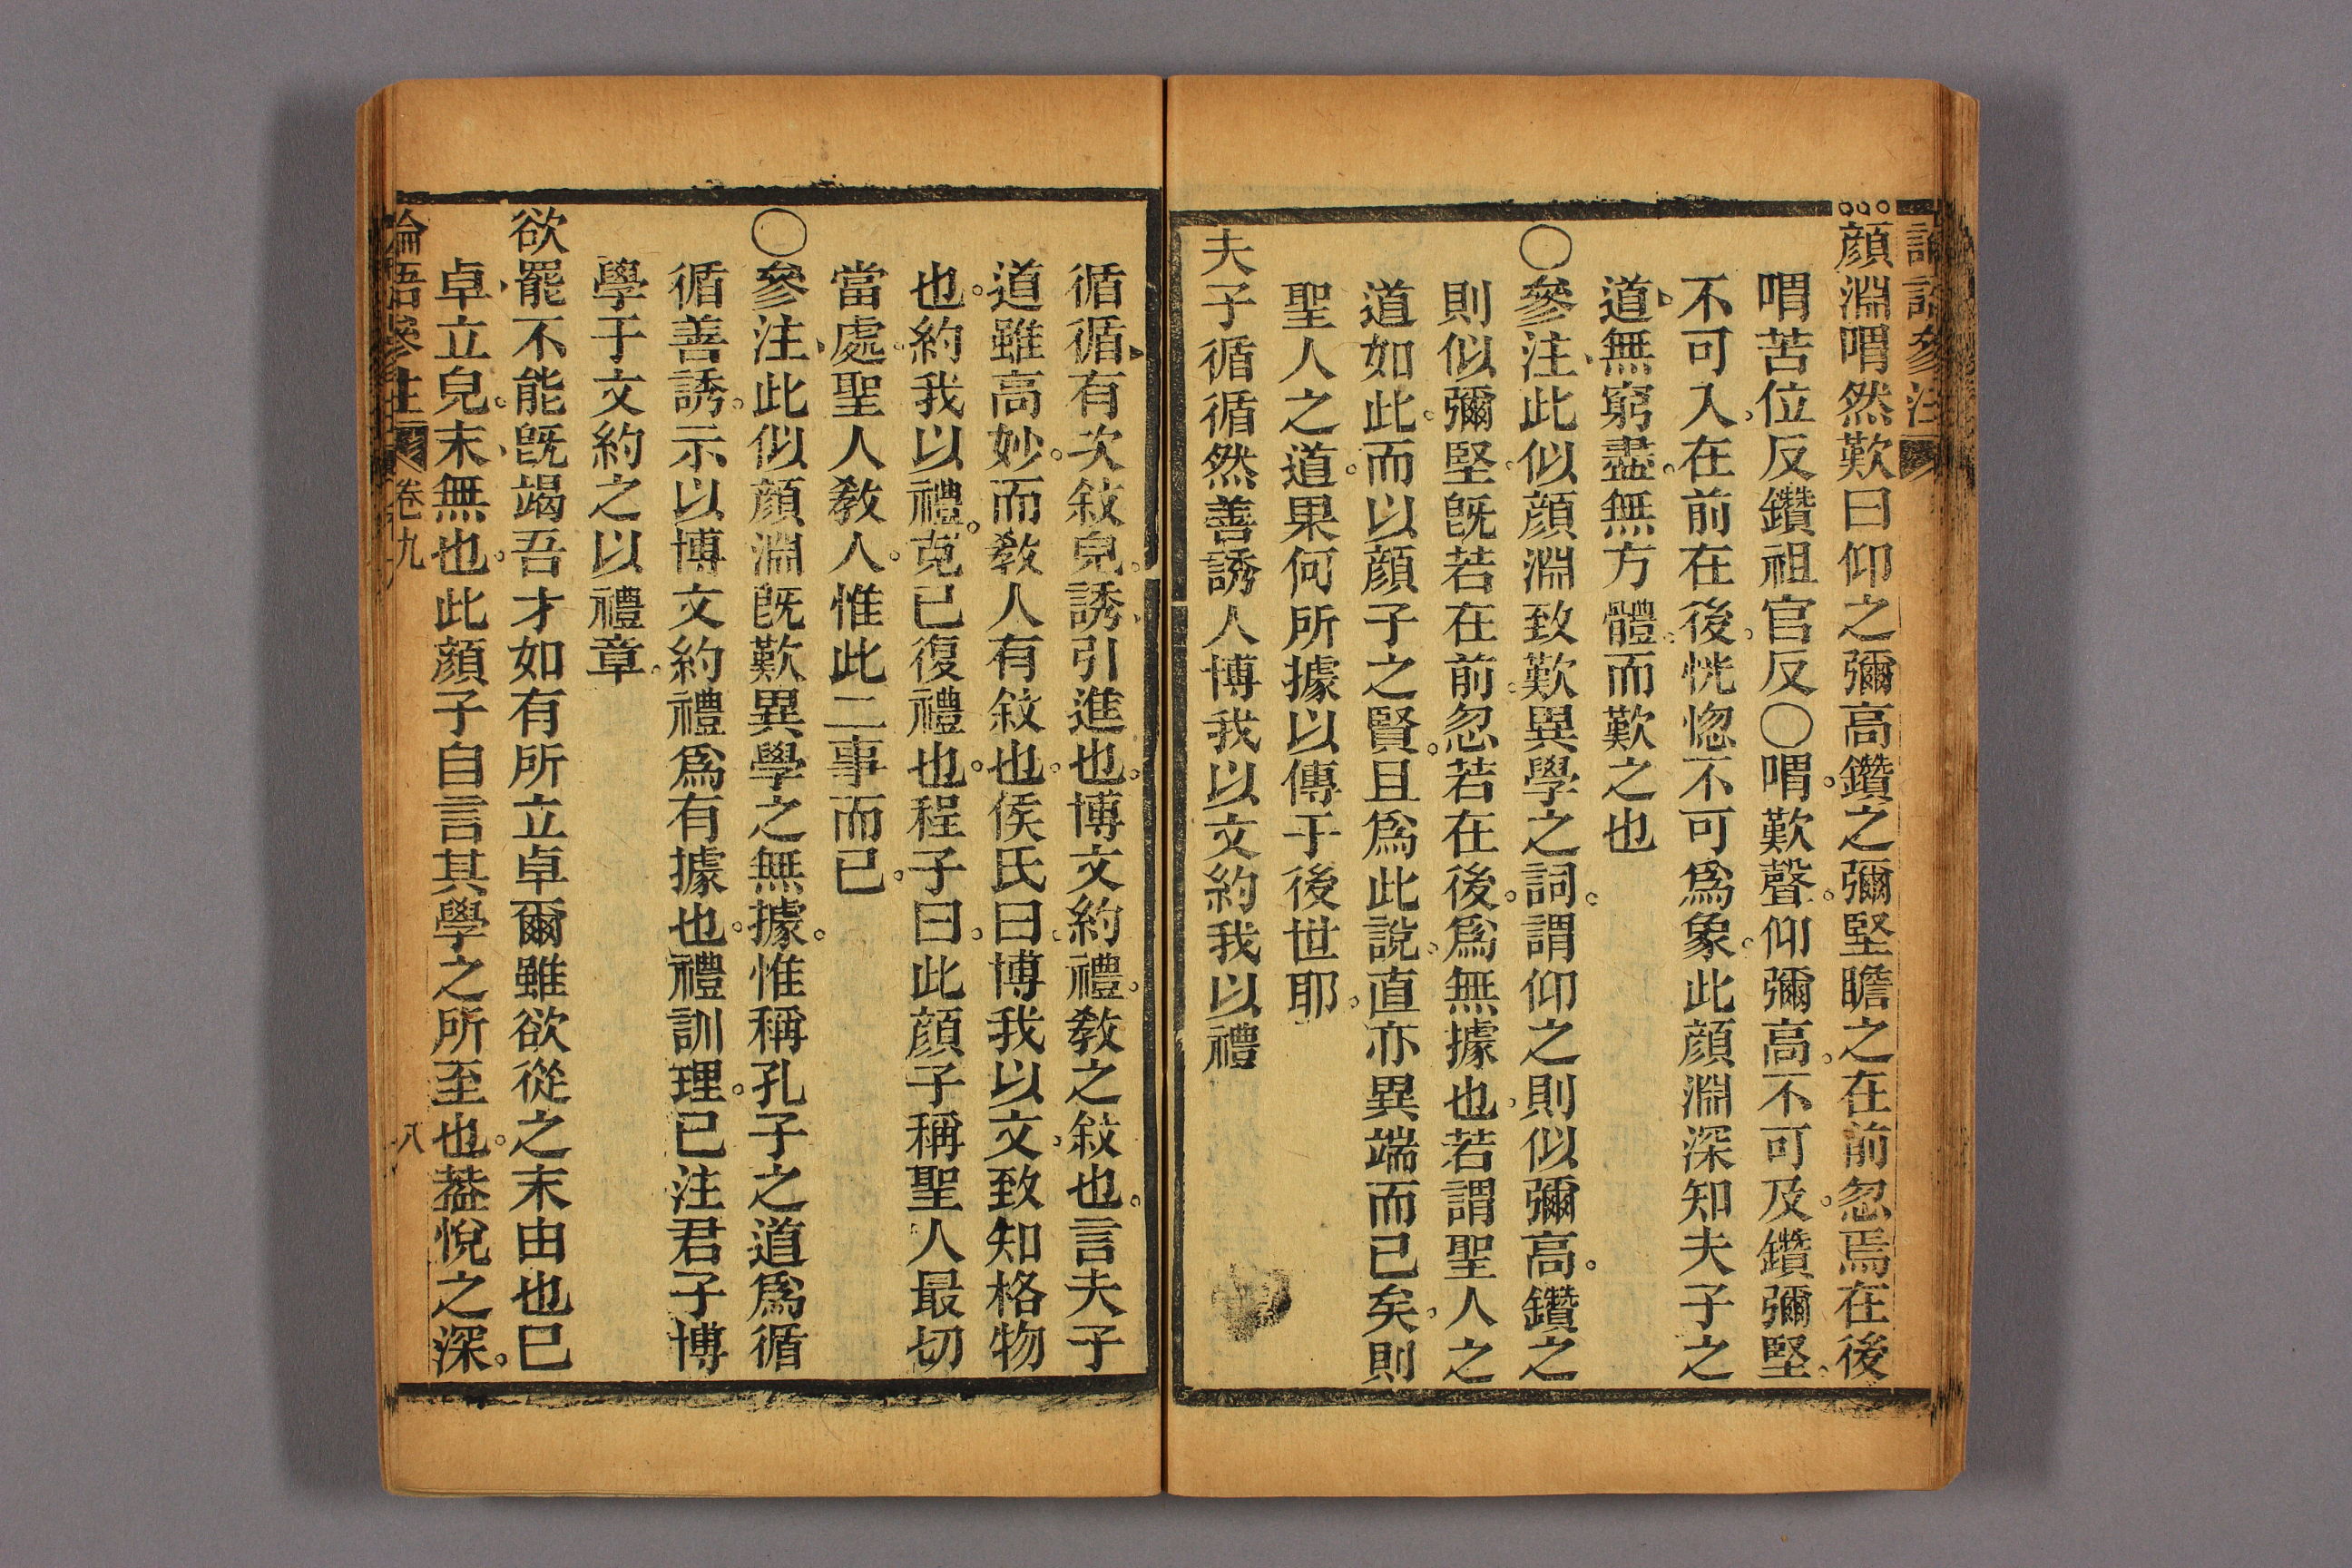 論語參注
顏淵喟然歎曰仰之彌高鑽之彌堅瞻之在前忽焉在後
喟苦位反鑽祖官反○喟歎聲仰彌高不可及鑽彌堅
不可入在前在後恍惚不可爲象此顏淵深知夫子之
道無窮盡無方體而歎之也
○參注此似顏淵致歎異學之詞謂仰之則似彌高鑽之
則似彌堅旣若在前忽若在後爲無據也若謂聖人之
道如此而以顏子之賢且爲此說直亦異端而已矣則
聖人之道果何所據以傳于後世耶
夫子循循然善誘人博我以文約我以禮
循循有次敘皃誘引進也博文約禮敎之敘也言夫子
道雖高妙而敎人有敘也侯氏曰博我以文致知格物
也約我以禮克己復禮也程子曰此顏子稱聖人最切
當處聖人敎人惟此二事而已
○參注此似顏淵旣歎異學之無據惟稱孔子之道爲循
循善誘示以博文約禮爲有據也禮訓理已注君子博
學于文約之以禮章
欲罷不能旣竭吾才如有所立卓爾雖欲從之末由也已
卓立皃末無也此顏子自言其學之所至也葢悅之深
論語參注 卷九 八